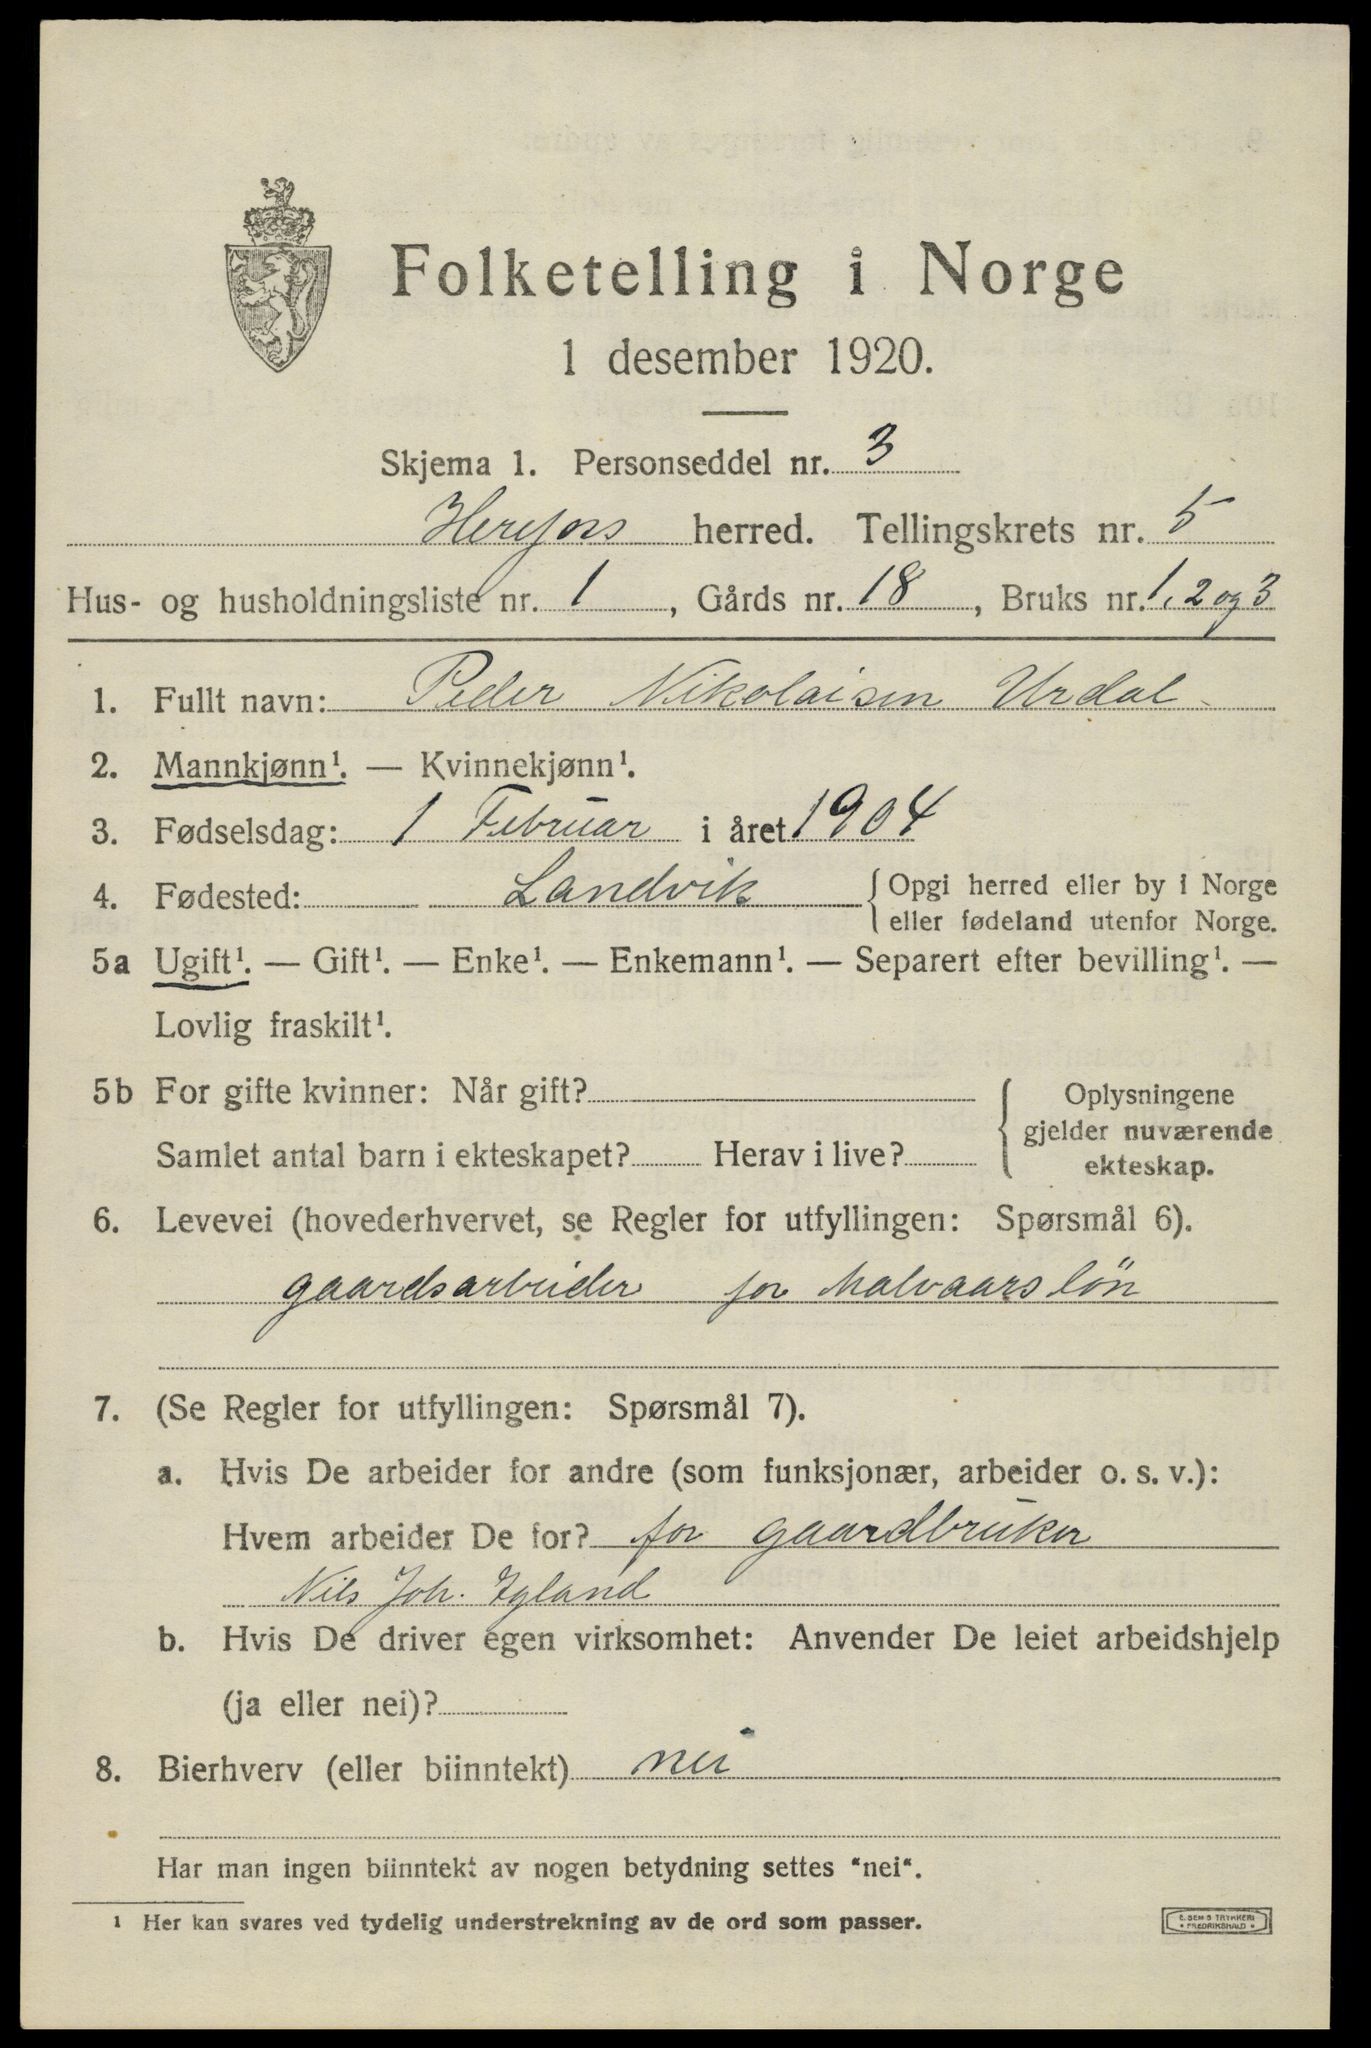 Folketelling i Norge
1 desember 1920.
Skjema 1. Personseddel nr. 3
Herefoss herred. Tellingskrets nr. 5
Hus- og husholdningsliste nr. 1, Gårds nr. 18, Bruks nr. 1, 2 og 3
1. Fullt navn: Peder Nikolaisen Urdal
2. Mannkjønn¹. — Kvinnekjønn¹.
3. Fødselsdag: 1 Februar i året 1904
4. Fødested: Landvik { Opgi herred eller by i Norge
eller fødeland utenfor Norge.
5a Ugift¹. — Gift¹. — Enke¹. — Enkemann¹. — Separert efter bevilling¹. —
Lovlig fraskilt¹.
5b For gifte kvinner: Når gift?
Samlet antal barn i ekteskapet? Herav i live?
{ Oplysningene
gjelder nuværende
ekteskap.
6. Levevei (hovederhvervet, se Regler for utfyllingen: Spørsmål 6).
gaardsarbeider for halvaarsløn
7. (Se Regler for utfyllingen: Spørsmål 7).
a. Hvis De arbeider for andre (som funksjonær, arbeider o. s. v.):
Hvem arbeider De for? for gaardbruker
Nils Joh. Igland
b. Hvis De driver egen virksomhet: Anvender De leiet arbeidshjelp
(ja eller nei)?
8. Bierhverv (eller biinntekt) nei
Har man ingen biinntekt av nogen betydning settes "nei".
¹ Her kan svares ved tydelig understrekning av de ord som passer.
E. SEM'S TRYKKERI
• FREDRIKSHALD •